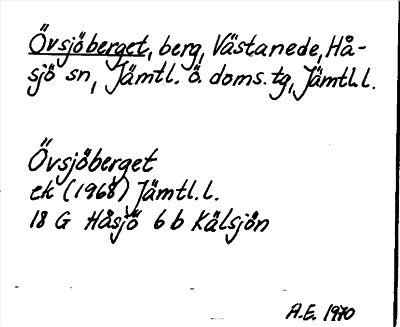 Övsjöberget, berg, Västanede, Hå-
sjö sn, Jämtl. ö. doms. tg, Jämtl.l.
Övsjöberget
ek (1968) Jämtl.l.
18 G Håsjö 6 b Kälsjön
A.E. 1970